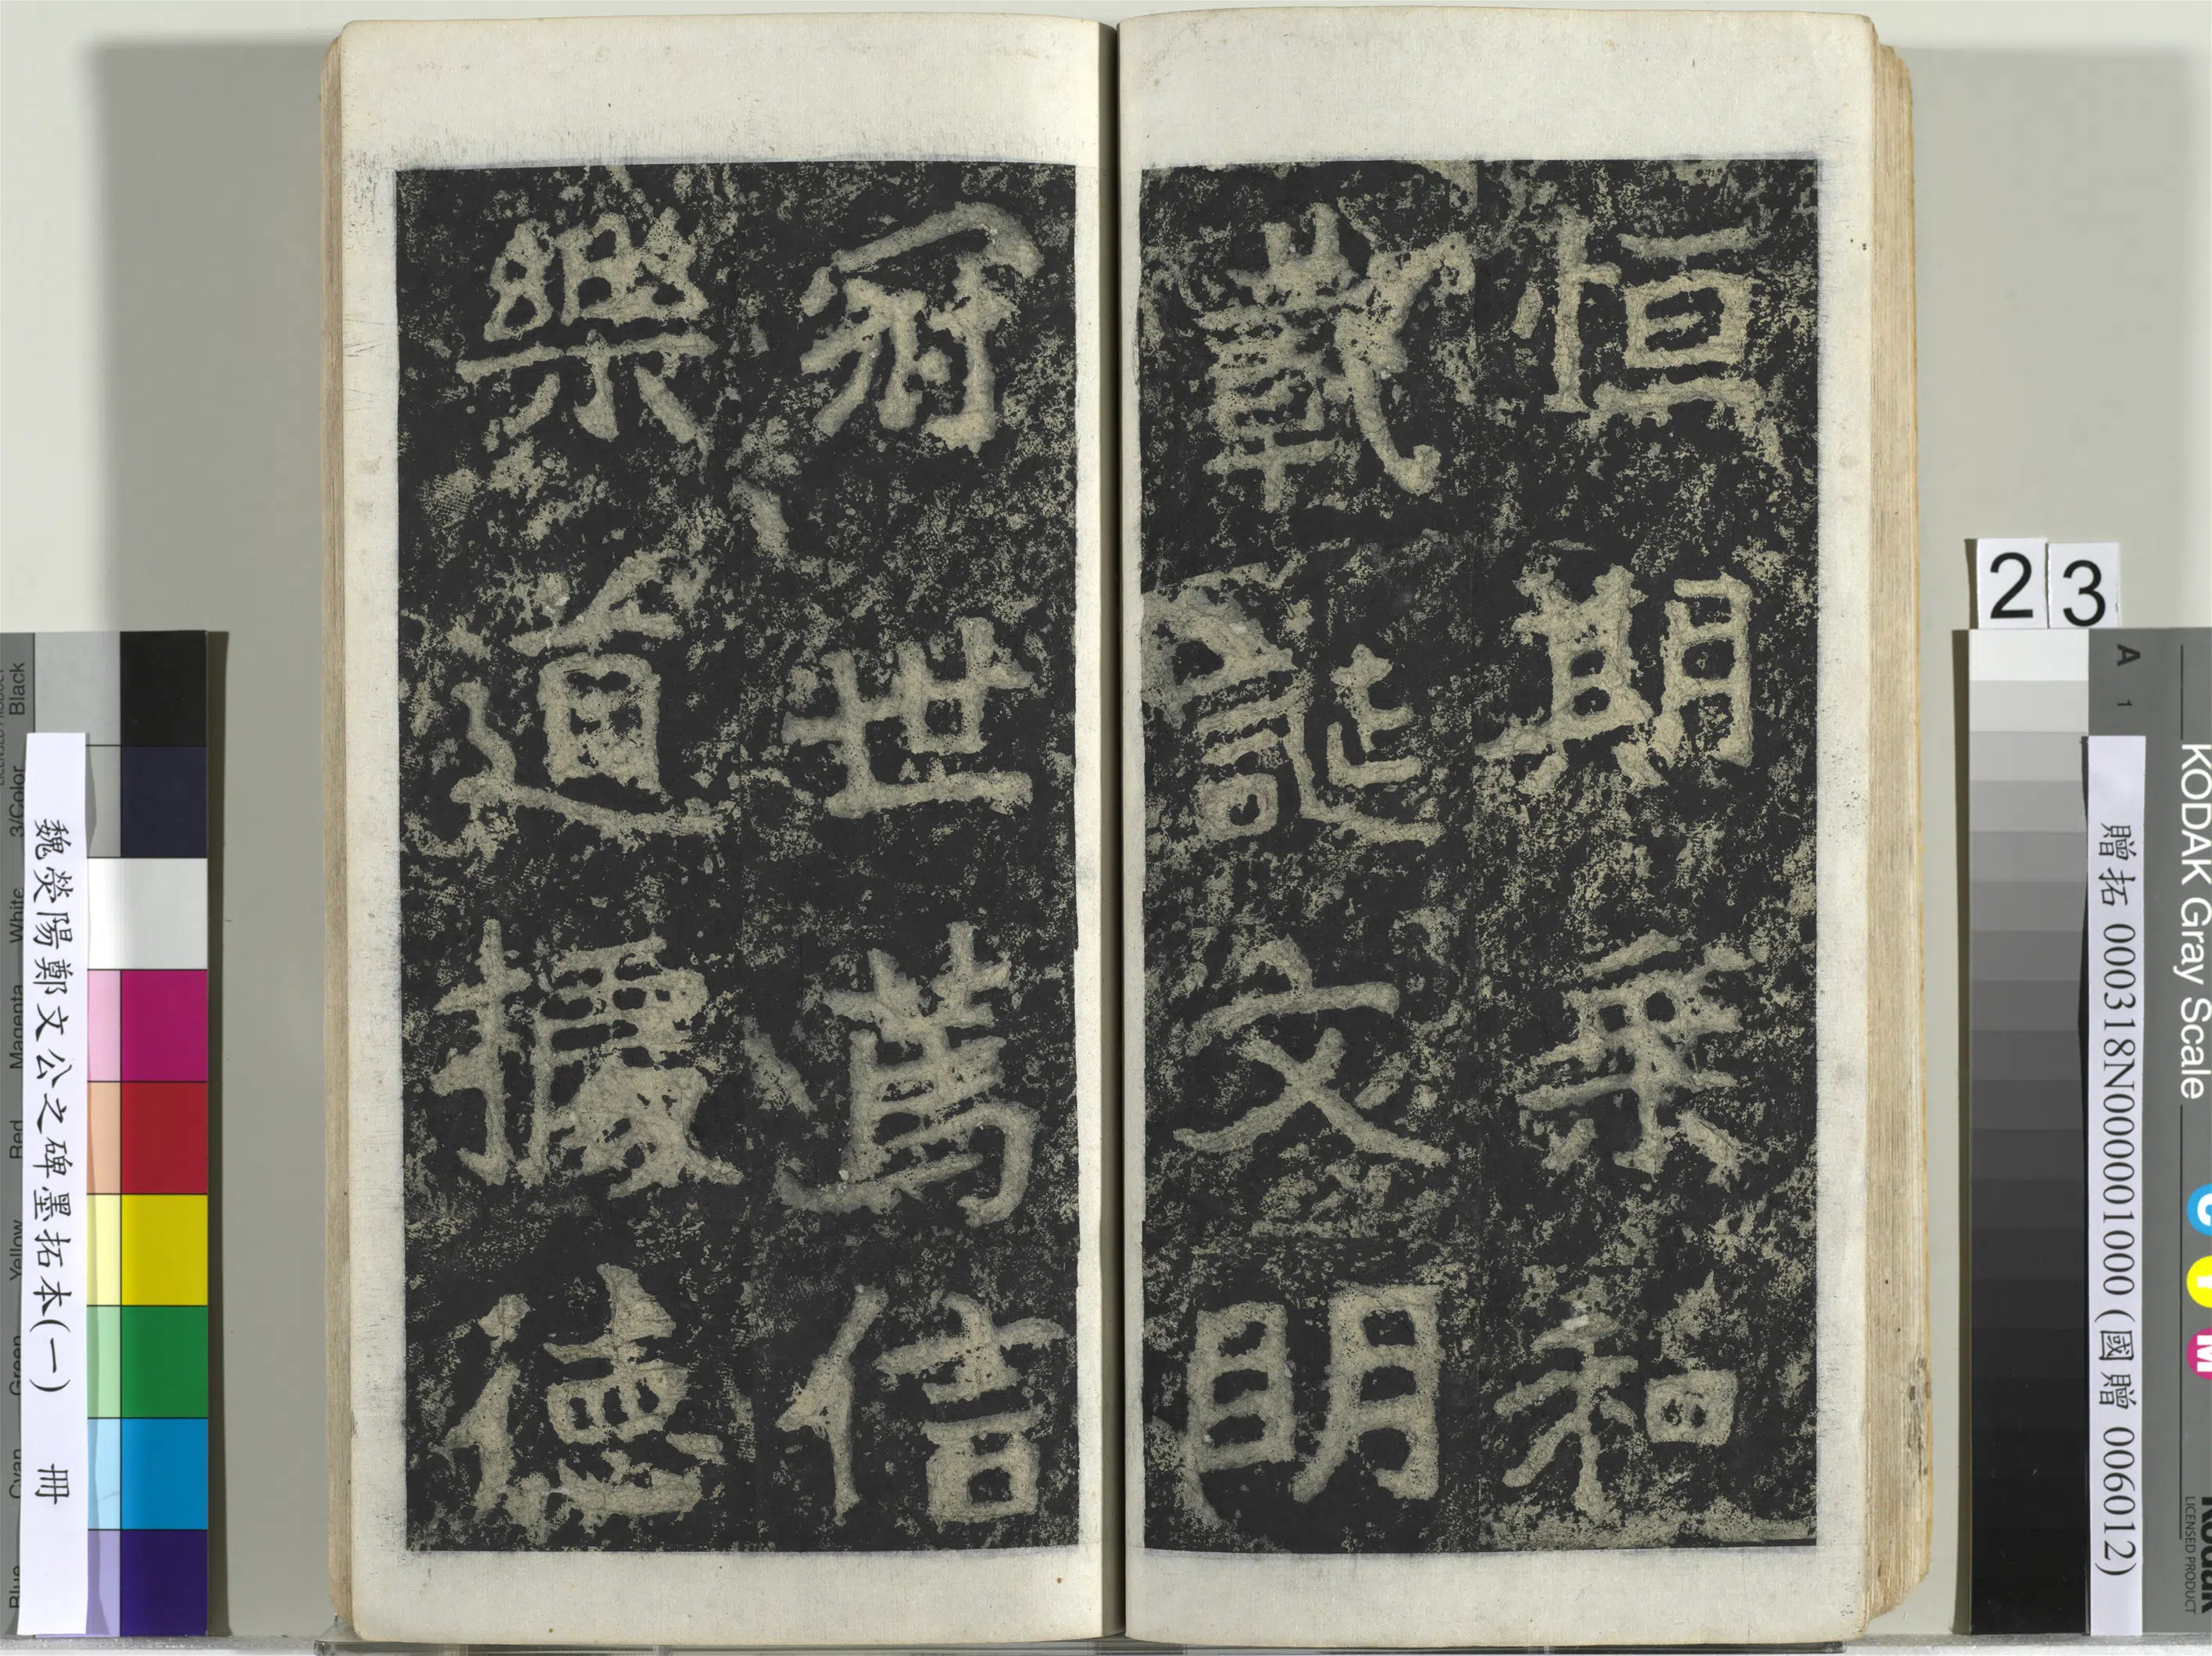 恒期乘和
載誕文明
冠世篤信
樂道據德
23
A 1
KODAK Gray Scale
C Y M
LICENSED PRODUCT
贈拓 000318N000001000 (國贈 006012)
魏熒陽鄭文公之碑墨拓本(一) 冊
Blue Cyan Green Yellow Red Magenta White 3/Color Black